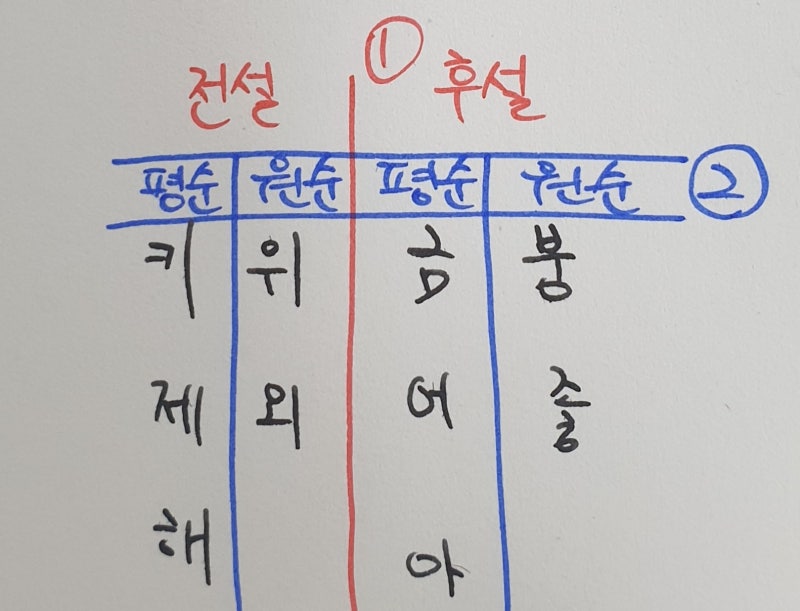 전설 ① 후설
평순 원순 평순 원순 ②
키 위 금 붕
제 외 어 좋
해 아